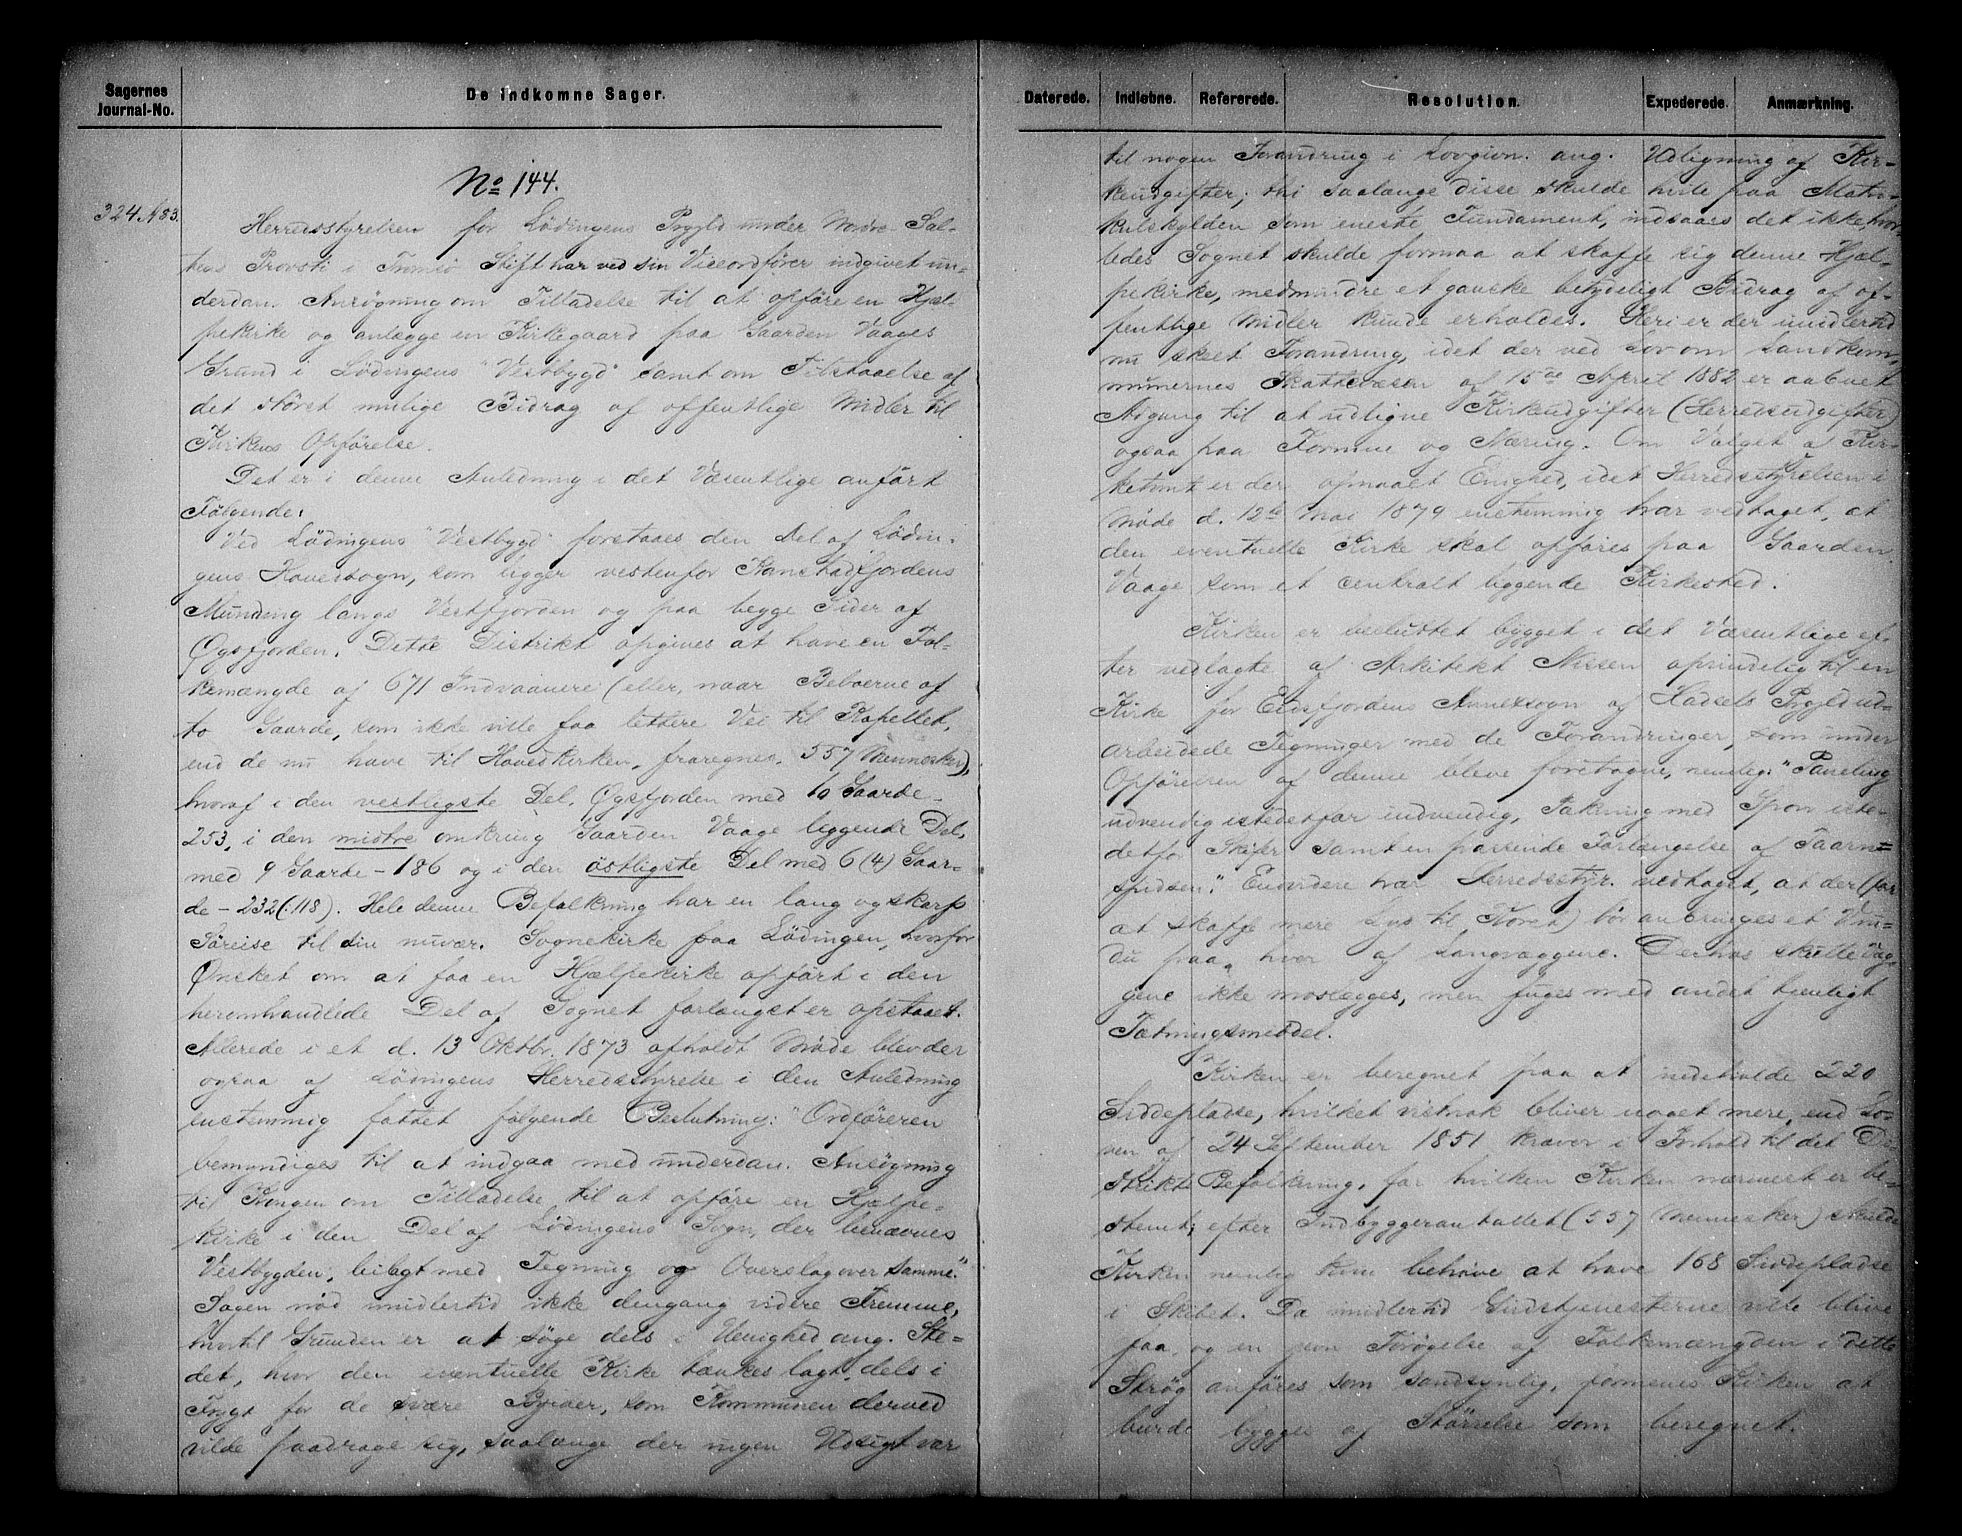 Sagernes
Journal-No.
De indkomne Sager.
No 144.
324.A83.
Herredsstyrelsen for Lödingens Prgjld under Nordre Sal-
tens Provsti i Tromsö Stift har ved sin Viceordförer indgivet un-
derdan. Ansøgning om Tilladelse til at opføre en Hjæl-
pekirke og anlægge en Kirkegaard paa Gaarden Vaages
Grund i Lödingens "Vestbygd" samt om Tilstaaelse af
det størst mulige Bidrag af offentlige Midler til
Kirkens Opførelse.
Det er i denne Anledning i det Væsentlige anført
Følgende:
Ved Lödingens "Vestbygd" forstaaes den Del af Lödin-
gens Hovedsogn, som ligger vestenfor Kanstadfjordens
Munding langs Vestfjorden og paa begge Sider af
Øgsfjorden. Dette Distrikt opgives at have en Fol-
kemængde af 671 Indvaanere (eller, naar Beboerne af
to Gaarde, som ikke ville faa lettere Vei til Kapellet,
end de nu have til Hovedkirken, fraregnes, 557 Mennesker),
hvoraf i den vestligste Del, Øgsfjorden med 10 Gaarde-
253, i den midtre omkring Gaarden Vaage liggende Del,
med 9 Gaarde - 186 og i den østligste Del med 6 (4) Gaar-
de - 232 (118). Hele denne Befolkning har en lang og skarp
Søreise til sin nuvær. Sognekirke paa Lödingen, hvorfor
Ønsket om at faa en Hjælpekirke opført i den
heromhandlede Del af Sognet forlænget er opstaaet.
Allerede i et d. 13 Oktbr. 1873 afholdt Møde blev der
ogsaa af Lödingens Herredsstyrelse i den Anledning
enstemmig fattet følgende Beslutning: "Ordføreren
bemyndiges til at indgaa med underdan. Ansøgning
til Kongen om Tilladelse til at opføre en Hjælpe-
kirke i den Del af Lödingens Sogn, der benævnes
Vestbygden, bilagt med Tegning og Overslag over samme."
Sagen nød imidlertid ikke dengang videre Fremme,
hvortil Grunden er at søge dels i Uenighed ang. Ste-
det, hvor den eventuelle Kirke tænkes lagt, dels i
Frygt for de svære Byrder, som Kommunen derved
vilde paadrage sig, saalænge der ingen Udsigt var
Daterede. Indløbne. Refererede. Resolution. Expederede. Anmærkning.
til nogen Forandring i Lovgivn. ang. Udligning af Kir-
keudgifter; thi saalænge disse skulde hvile paa Matri-
kulskylden som eneste Fundament, indsaaes det ikke, hvor-
ledes Sognet skulde formaa at skaffe sig denne Hjæl-
pekirke, medmindre et ganske betydeligt Bidrag af of-
fentlige Midler kunde erholdes. Heri er der imidlertid
nu skeet Forandring, idet der ved Lov om Landkom-
munernes Skattevæsen af 15de April 1882 er aabnet
Adgang til at udligne Kirkeudgifter (Herredsudgifter)
ogsaa paa Formue og Næring. Om Valget af Kir-
ketomt er der opnaaet Enighed, idet Herredsstyrelsen i
Møde d. 12te Mai 1879 enstemmig har vedtaget, at
den eventuelle Kirke skal opføres paa Gaarden
Vaage som et centralt liggende Kirkested.
Kirken er besluttet bygget i det Væsentlige ef-
ter vedlagte af Arkitekt Nissen oprindelig til en
Kirke for Eidsfjordens Annexsogn af Hadsels Prgjld ud-
arbeidede Tegninger med de Forandringer, som under
Opførelsen af denne bleve foretagne, nemlig: "Paneling
udvendig istedetfor indvendig, Tækning med Spon iste-
detfor Skifer samt en passende Forlængelse af Taarn-
spidsen." Endvidere har Herredsstyr. vedtaget, at der (for
at skaffe mere Lys til Koret) bør anbringes et Vin-
du paa hver af Langvæggene. Derhos skulle Væg-
gene ikke moslægges, men fuges med andet tjenligt
Tætningsmiddel.
Kirken er beregnet paa at indeholde 220
Siddepladse, hvilket vistnok bliver noget mere, end Lo-
ven af 24 September 1851 kræver i Forhold til det Di-
strikts Befolkning, for hvilken Kirken nærmest er be-
stemt; efter Indbyggerantallet (557 Mennesker) skulde
Kirken nemlig kun behøve at have 168 Siddepladse
i Skibet. Da imidlertid Gudstjenesterne ville blive
faa, og en jevn Forøgelse af Folkemængden i dette
Strøg anføres som sandsynlig, formenes Kirken at
burde bygges af Størrelse som beregnet.